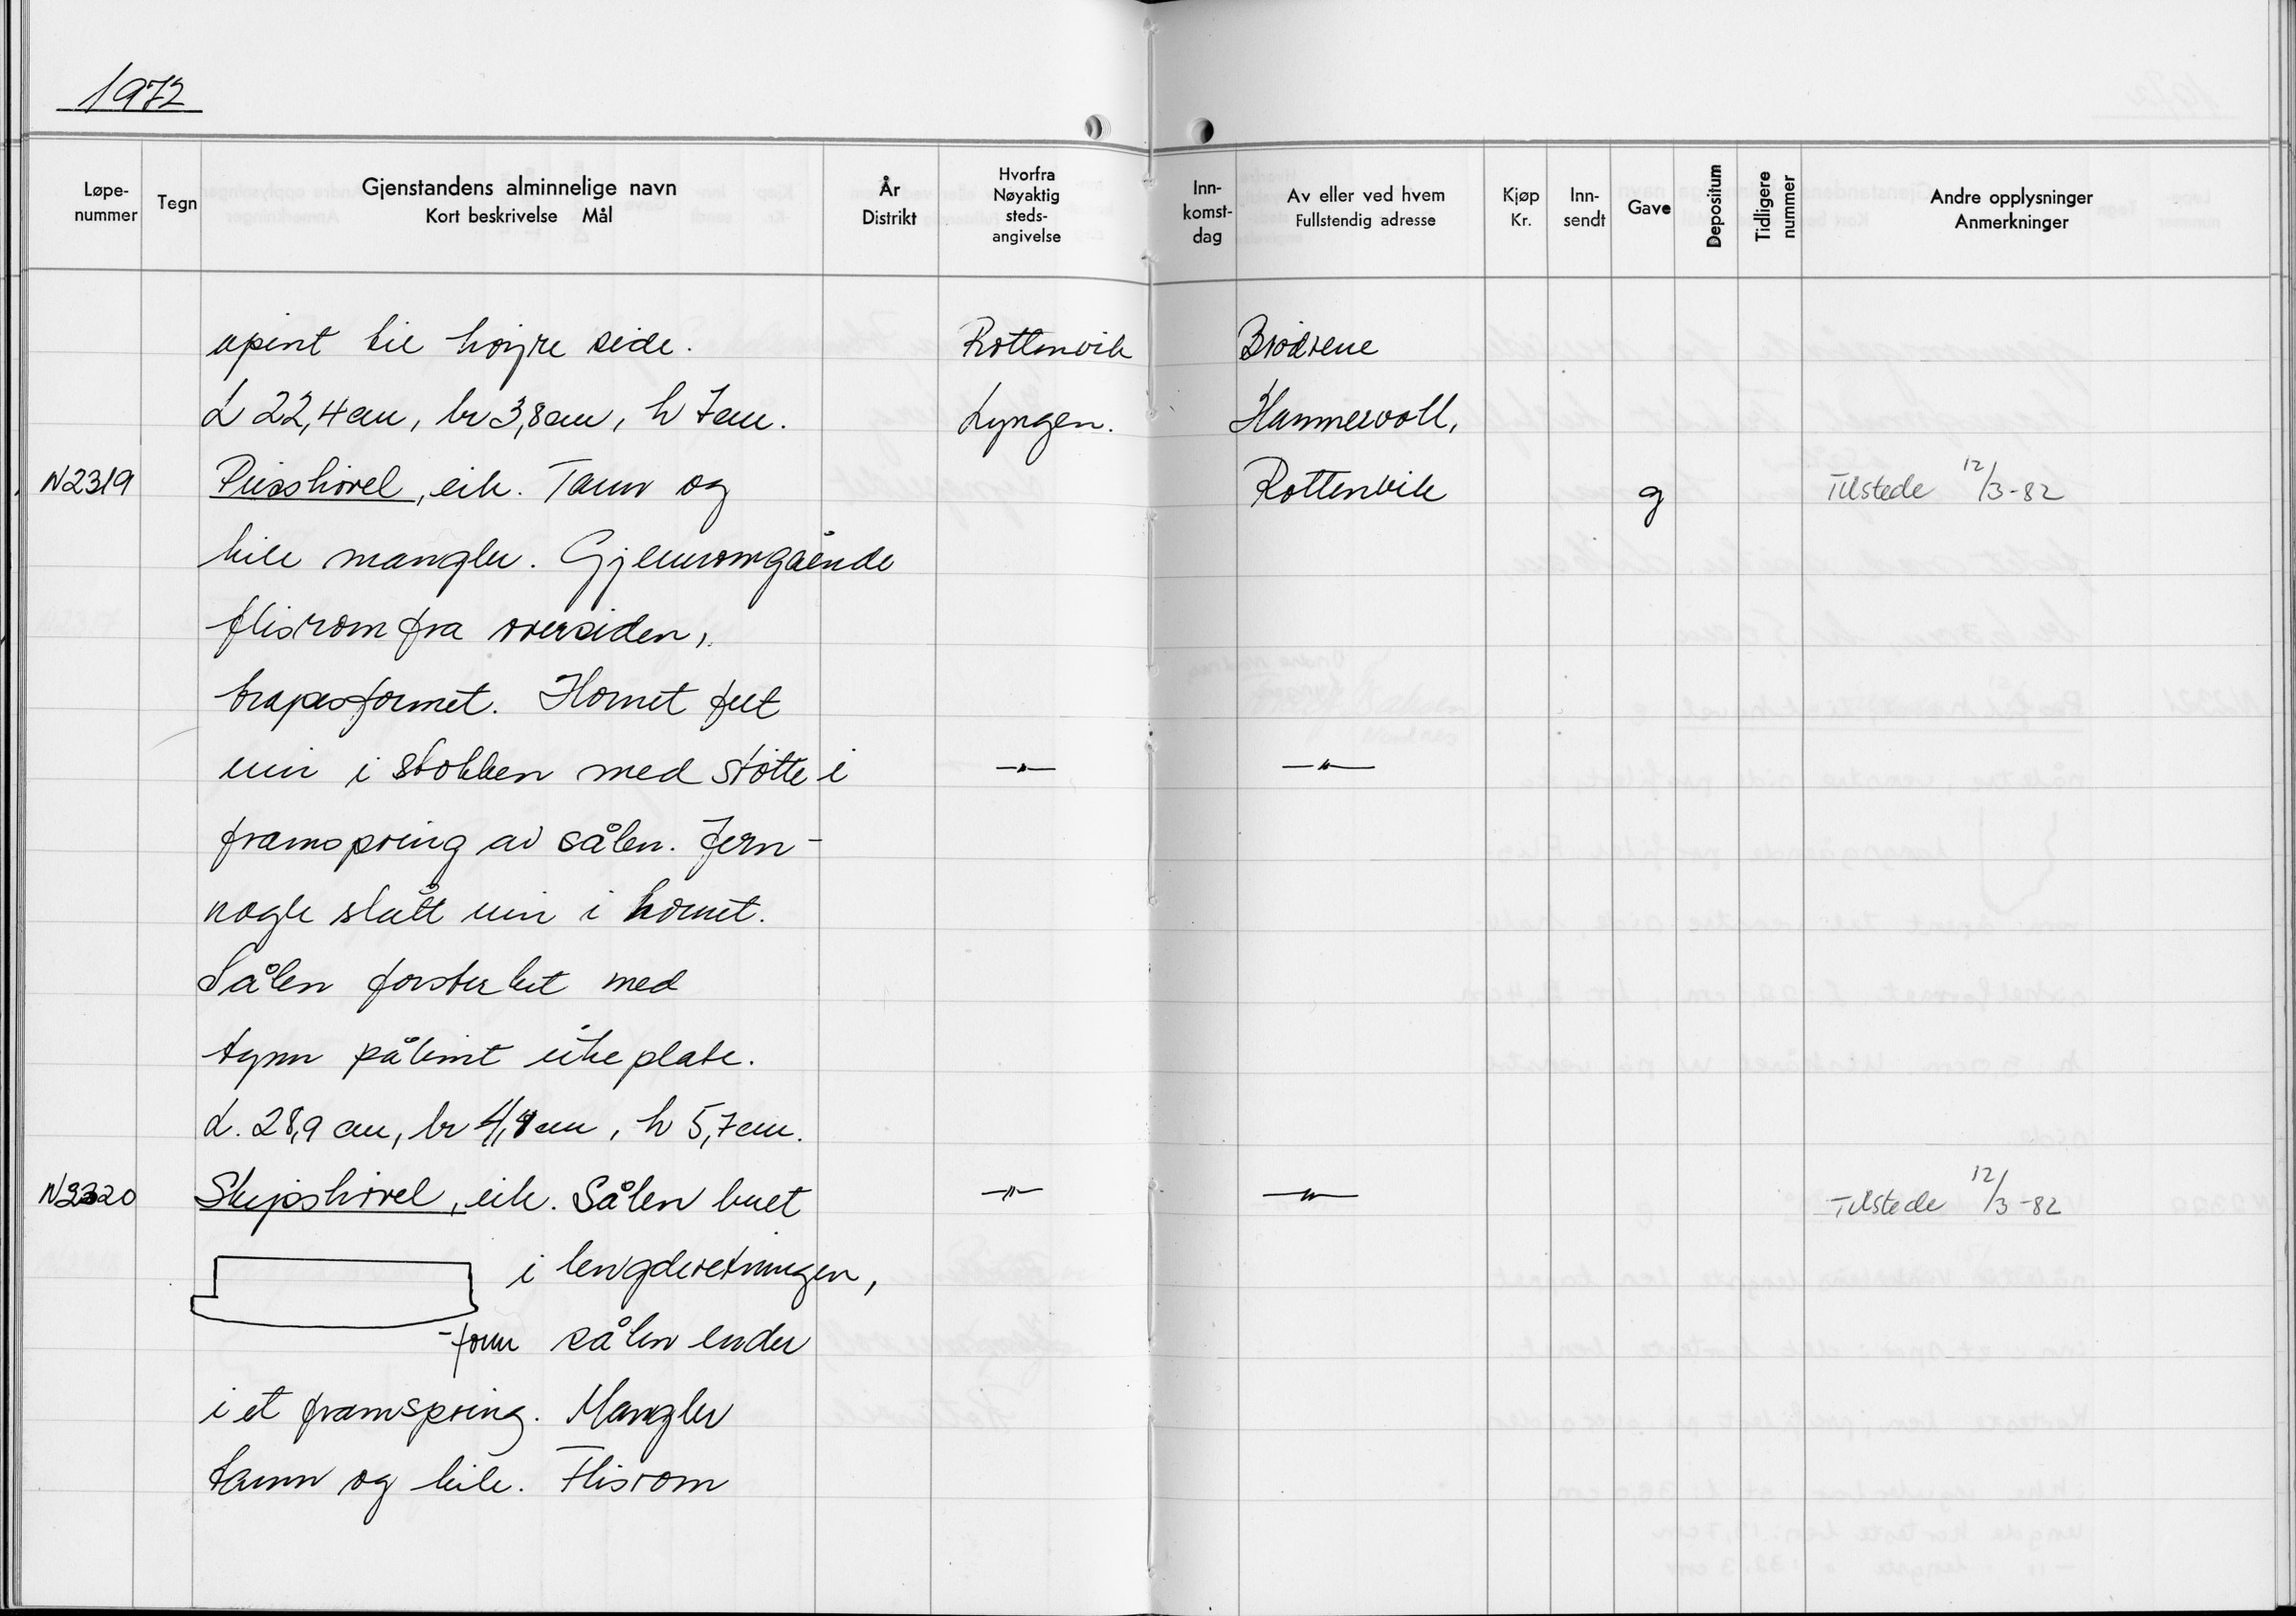 1972
Løpe-nummer Tegn Gjenstandens alminnelige navn Kort beskrivelse Mål År Distrikt Hvorfra Nøyaktig steds-angivelse Inn-komst-dag Av eller ved hvem Fullstendig adresse Kjøp Kr. Inn-sendt Gave Depositum Tidligere nummer Andre opplysninger Anmerkninger
åpent til høyre side. Rottenvik Brødrene
L 22,4 cm, br 3,8 cm, h 7 cm. Lyngen. Hammervoll,
N2319 Pusshøvel, eik. Tann og Rottenvik g Tilstede 12/3-82
kile mangler. Gjennomgående
flisrom fra oversiden,
trapesformet. Hornet felt
inn i stokken med støtte i —"— —"—
framspring av sålen. Jern-
nagle slått inn i hornet.
Sålen forsterket med
tynn pålimt eikeplate.
L. 28,9 cm, br 4,8 cm, h 5,7 cm.
N2320 Skipshøvel, eik. Sålen buet —"— —"— Tilstede 12/3-82
i lengderetningen,
-form sålen ender
i et framspring. Mangler
tann og kile. Flisrom